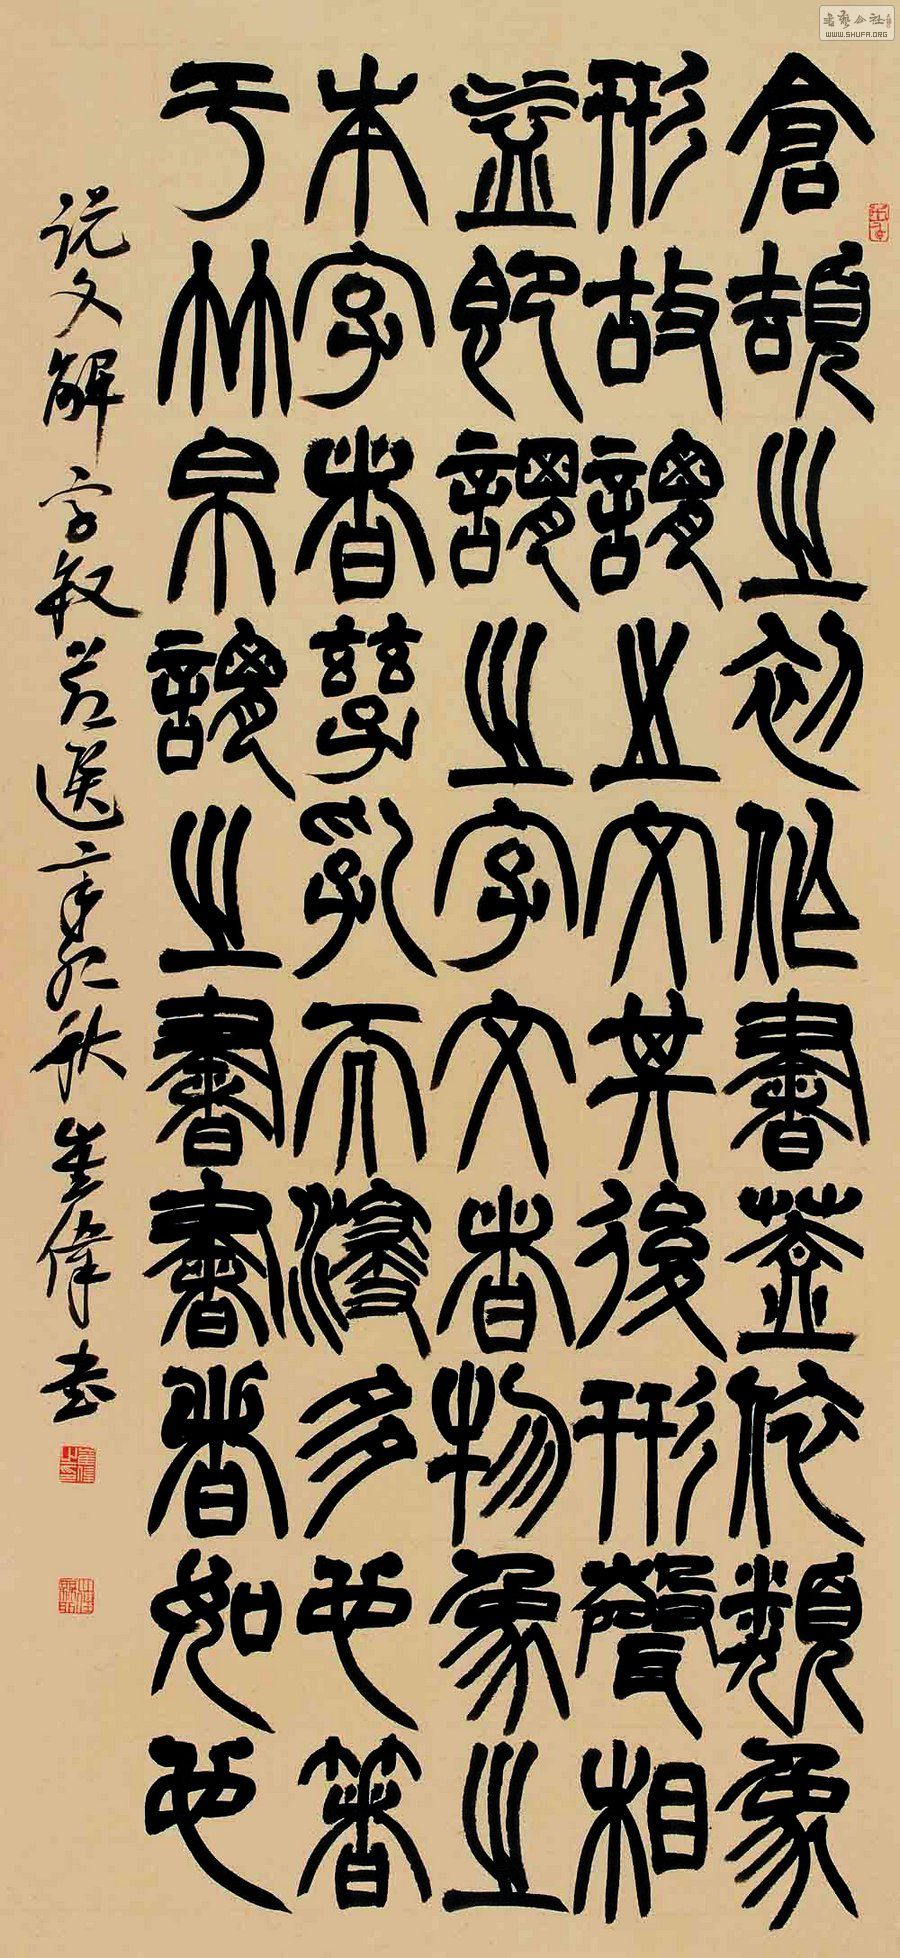 倉頡之初作書蓋依類象
形故謂之文其後形聲相
益即謂之字文者物象之
本字者孳乳而浸多也箸
于竹帛謂之書書者如也
说文解字叙节选 辛卯秋 伟书
WWW.SHUFA.ORG